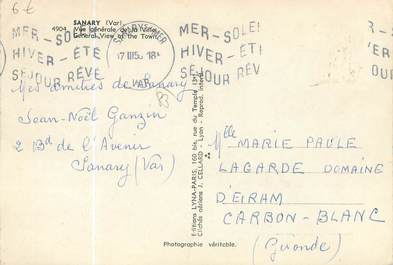 6 €
SANARY (Var)
4904. Vue générale de la Ville
General View of the Town
MER-SOLEI
HIVER-ÉTÉ
SÉJOUR RÊVÉ
SANARY S/MER
VAR
MER-SOLEI
HIVER-ÉTÉ
SÉJOUR RÊVÉ
Mes Amitiés de Sanary
83
Jean-Noël Ganzin
2 Bd de l'Avenir
Sanary (Var)
Editions LYNA-PARIS, 160 bis, rue du Temple (3e)
Clichés aériens J. CELLARD - Lyon - Reprod. interd.
Mlle
MARIE PAULE
LAGARDE DOMAINE
D'EIRAM
CARBON-BLANC
(Gironde)
Photographie véritable.